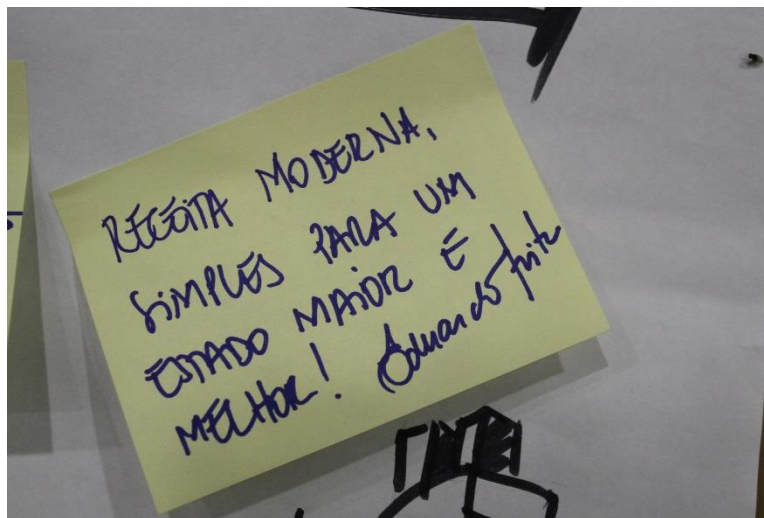 RECEITA MODERNA,
SIMPLES PARA UM
ESTADO MAIOR E
MELHOR! Eduardo Fritz